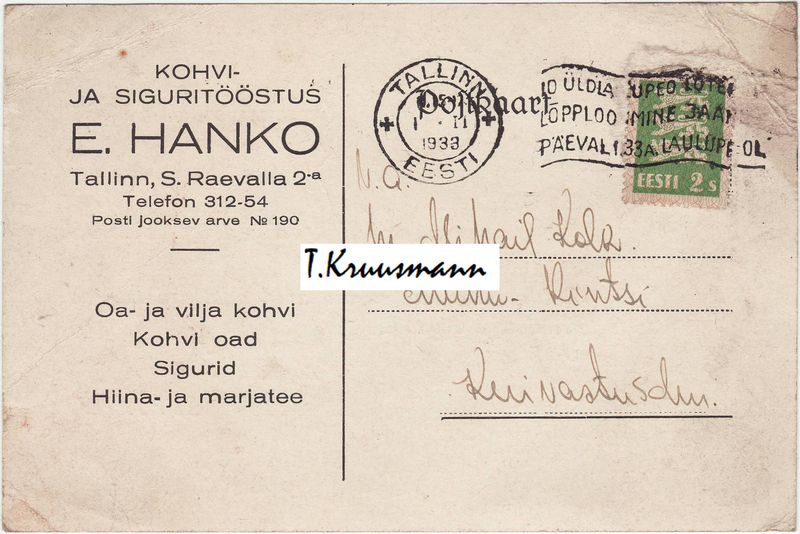 KOHVI-
JA SIGURITÖÖSTUS
E. HANKO
Tallinn, S. Raevalla 2-a
Telefon 312-54
Posti jooksev arve № 190
Oa- ja vilja kohvi
Kohvi oad
Sigurid
Hiina- ja marjatee
Postkaart
TALLINN
1933
EESTI
10 ÜLDLA UPEO LOTE
LOPPLOO MINE JAAN
PÄEVAL 1933A LAULUPE-OL
EESTI 2 s
T.Kruusmann
Mihail Kola.
Rintsi
Kuivastusdm.